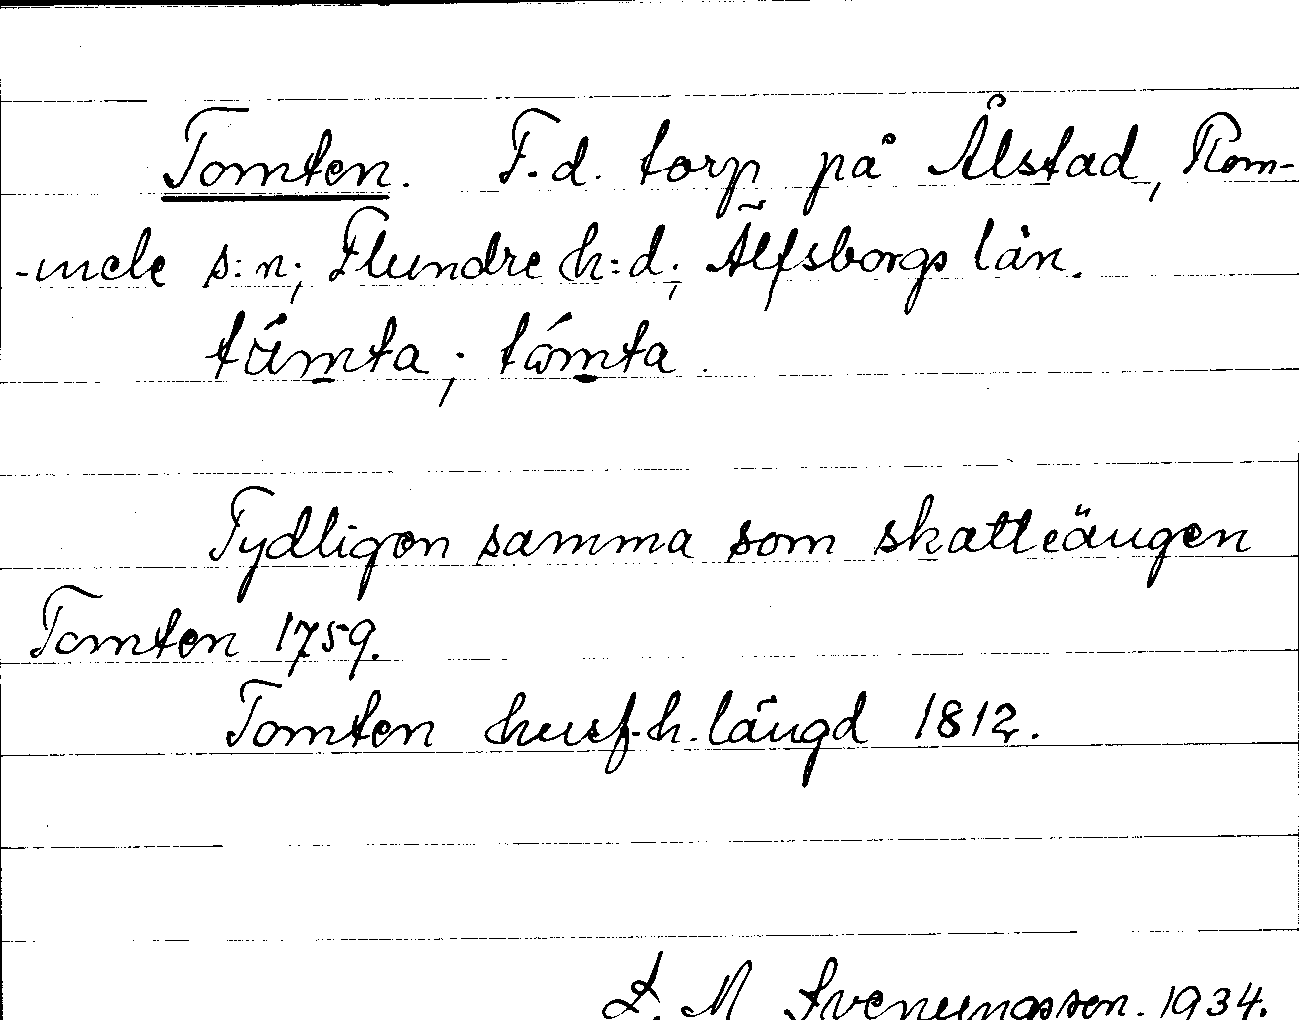 Tomten. F.d. torp på Ålstad, Rom-
-mele s:n; Flundre h:d; Älfsborgs län.
tåmta; tómta.
Tydligen samma som skatteängen
Tomten 1759.
Tomten husf.h.längd 1812.
M Svenungsson. 1934.